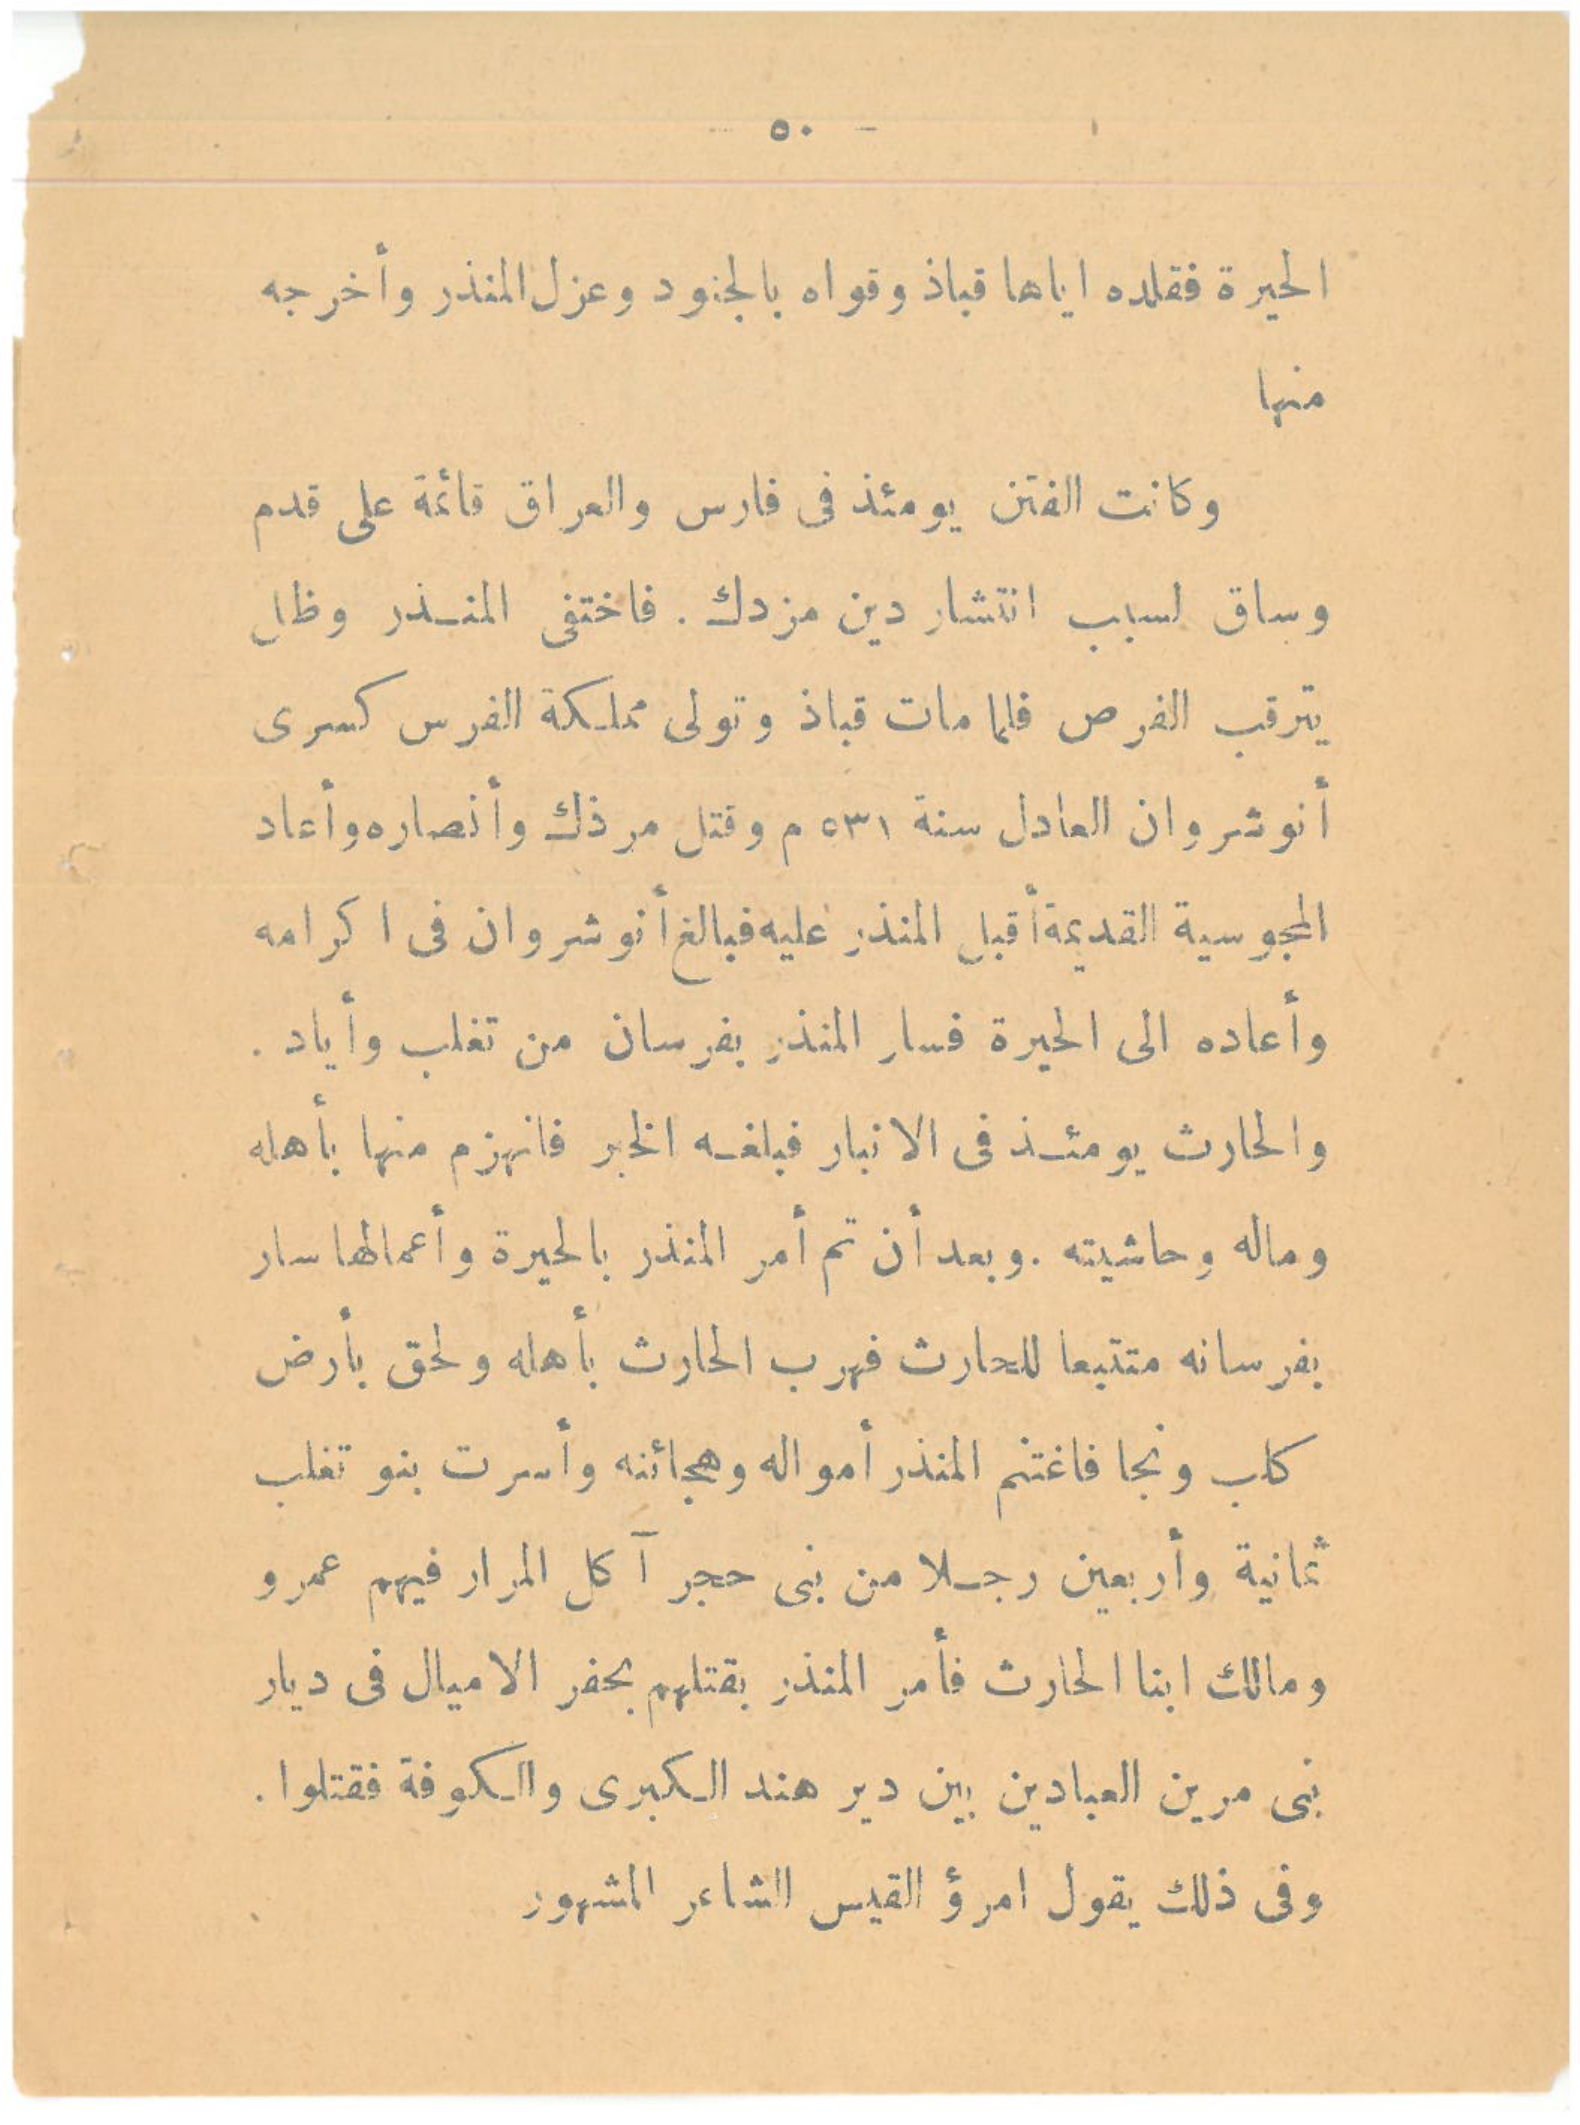 - ٥٠ -
الحيرة فقلده اياها قباذ وقواه بالجنود وعزل المنذر وأخرجه
منها
وكانت الفتن يومئذ فى فارس والعراق قائمة على قدم
وساق لسبب انتشار دين مزدك . فاختفى المنذر وظل
يترقب الفرص فلما مات قباذ وتولى مملكة الفرس كسرى
أنوشروان العادل سنة ٥٣١ م وقتل مرذك وأنصاره وأعاد
المجوسية القديمة أقبل المنذر عليه فبالغ أنوشروان فى اكرامه
وأعاده الى الحيرة فسار المنذر بفرسان من تغلب وأياد .
والحارث يومئذ فى الانبار فبلغه الخبر فانهزم منها بأهله
وماله وحاشيته . وبعد أن تم أمر المنذر بالحيرة وأعمالها سار
بفرسانه متتبعا للحارث فهرب الحارث بأهله ولحق بأرض
كلب ونجا فاغتنم المنذر أمواله وهجائنه وأسرت بنو تغلب
ثمانية وأربعين رجلا من بنى حجر آكل المرار فيهم عمرو
ومالك ابنا الحارث فأمر المنذر بقتلهم بحفر الاميال فى ديار
بنى مرين العبادين بين دير هند الكبرى والكوفة فقتلوا .
وفى ذلك يقول امرؤ القيس الشاعر المشهور